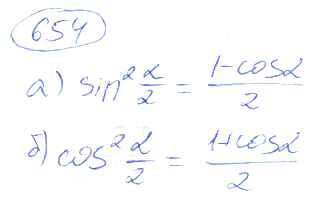 654
а) sin² α/2 = (1-cosα)/2
б) cos² α/2 = (1+cosα)/2